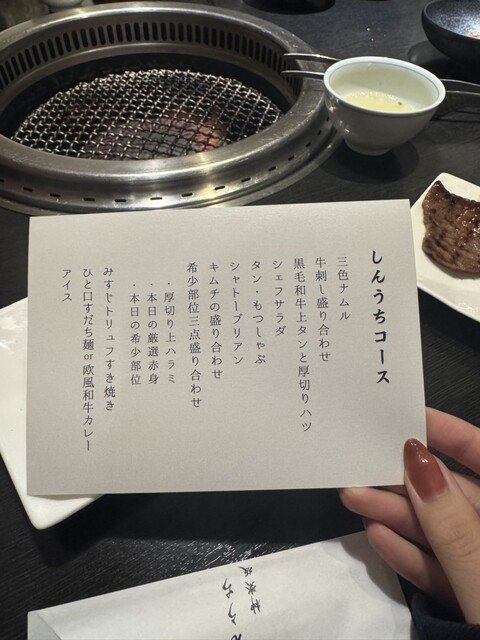 しんうちコース
三色ナムル
牛刺し盛り合わせ
黒毛和牛上タンと厚切りハツ
シェフサラダ
タン・もつしゃぶ
シャトーブリアン
キムチの盛り合わせ
希少部位三点盛り合わせ
・厚切り上ハラミ
・本日の厳選赤身
・本日の希少部位
みすじトリュフすき焼き
ひと口すだち麺or欧風和牛カレー
アイス
神楽坂